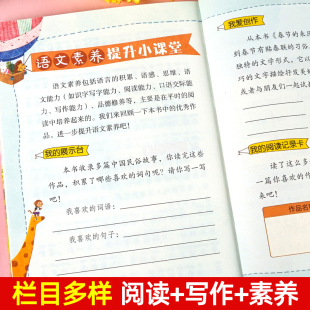 语文素养提升小课堂
语文素养包括语言的积累、语感、思维、语
文能力（如识字写字能力、阅读能力、以语交际能
力、写作能力）、品德修养等，主要是在平时的阅
读中培养起来的。我们来回顾一下本书中的优秀作
品，进一步提升语文素养吧！
我的展示台
本书收录多篇中国民俗故事，你读完这些
作品，积累了哪些喜欢的词句呢？请你写一写
吧！
我喜欢的词语：
我喜欢的句子：
我爱创作
从本书《春节的来历
到春节有贴春联的习俗
独特的文学形式，它以
巧的文字描绘
或者与朋友们一起试
我的阅读记录卡
读了这么多
一篇你喜欢的作
来吧！
作品名
栏目多样 阅读+写作+素养